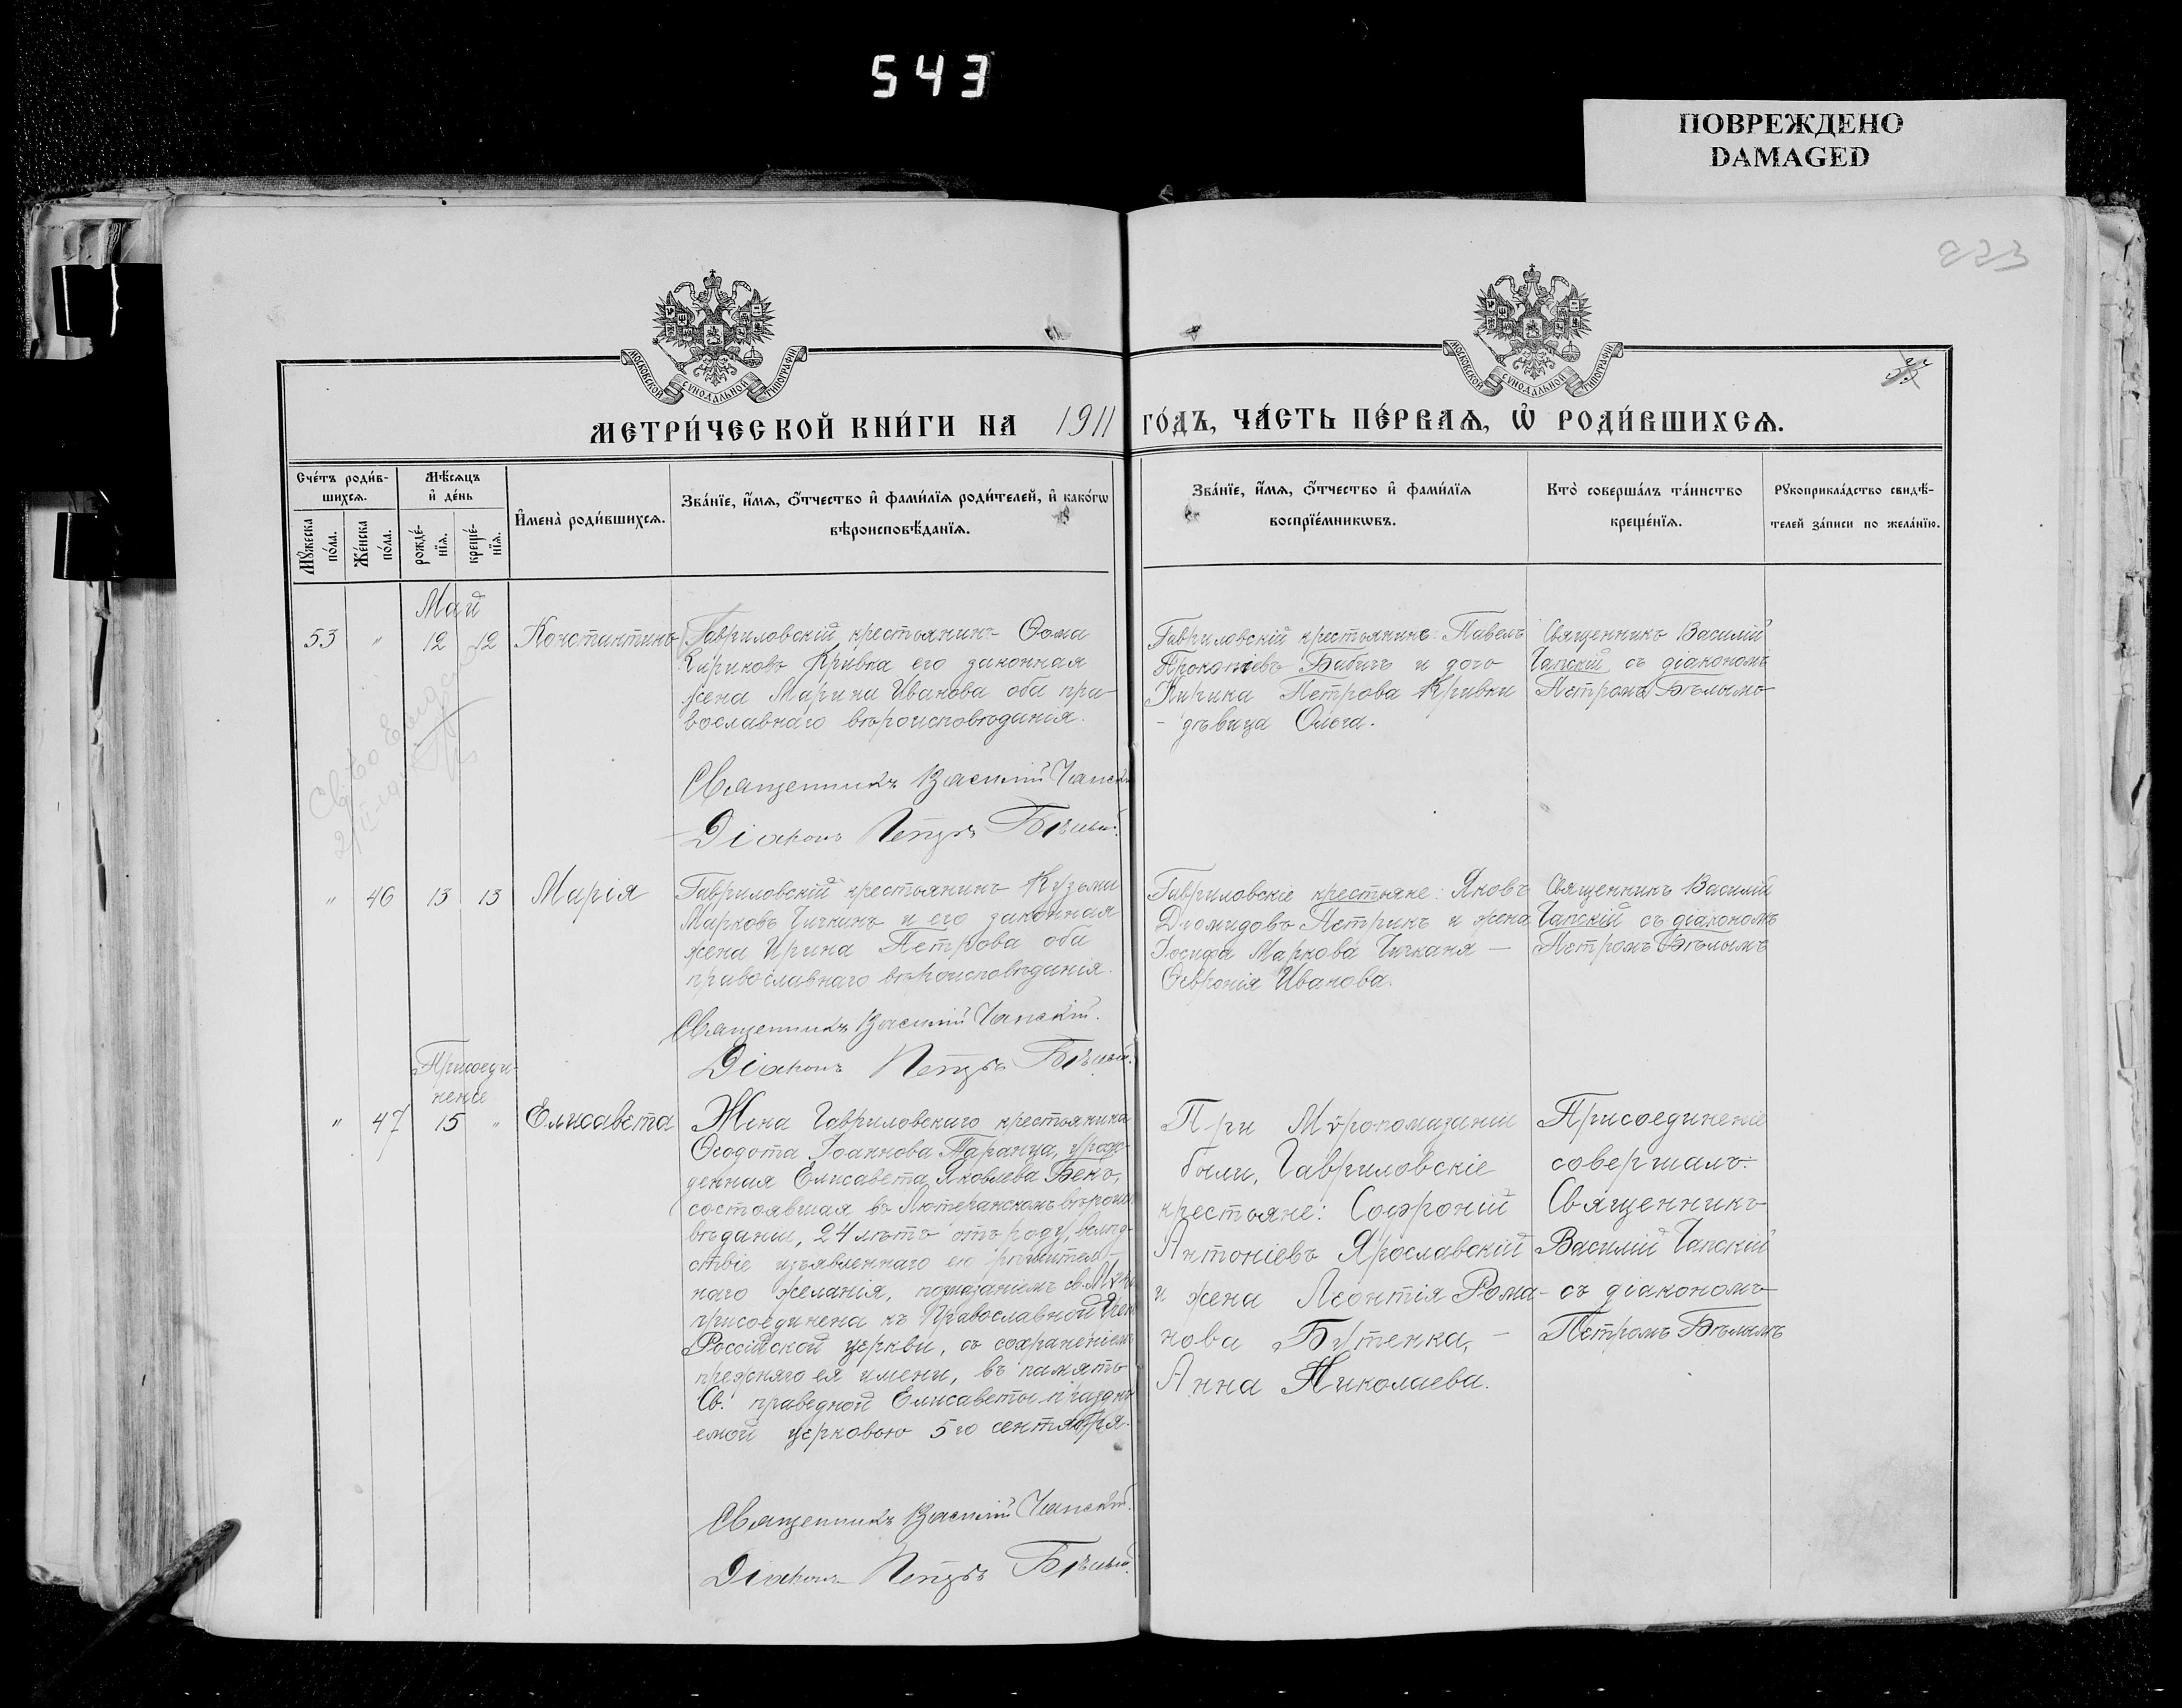 543
ПОВРЕЖДЕНО
DAMAGED
МОСКОВСКОЙ СѴНОДАЛЬНОЙ ТИПОГРАФІИ
МОСКОВСКОЙ СѴНОДАЛЬНОЙ ТИПОГРАФІИ
МЕТРИ́ЧЕСКОЙ КНИ́ГИ НА 1911 ГО́ДЪ, ЧА́СТЬ ПЕ́РВАѦ, Ѡ҆ РОДИ́ВШИХСѦ.
Сче́тъ роди́в-
шихсѧ.
Мꙋ́жеска
по́ла.
Же́нска
по́ла.
Мѣ́сѧцъ
и҆ де́нь
рожде́-
нїѧ.
креще́-
нїѧ.
И҆мена̀ роди́вшихсѧ.
Зва́нїе, и҆́мѧ, ѻ҆́тчество и҆ фами́лїѧ роди́телей, и҆ како́гѡ
вѣроисповѣ́данїѧ.
Зва́нїе, и҆́мѧ, ѻ҆́тчество и҆ фами́лїѧ
воспрїе́мникѡвъ.
Кто̀ соверша́лъ та́инство
креще́нїѧ.
Рꙋкоприкла́дство свидѣ́-
телей за́писи по жела́нїю.
Май
53 " 12 12 Константинъ
Гавриловскій крестьянинъ Ѳома
Кириковъ Кривка его законная
жена Марина Иванова оба пра-
вославнаго вѣроисповѣданія.
Священникъ Василій Чапскій
Діаконъ Петръ Бѣлый.
Гавриловскій крестьянинъ: Павелъ
Прокопіевъ Бабичъ и дочь
Кирика Петрова Кривки
- дѣвица Ольга.
Священникъ Василій
Чапскій съ діакономъ
Петромъ Бѣлымъ
" 46 13 13 Марія
Гавриловскій крестьянинъ Кузьма
Марковъ Чичкинъ и его законная
жена Ирина Петрова оба
православнаго вѣроисповѣданія.
Священникъ Василій Чапскій.
Діаконъ Петръ Бѣлый.
Гавриловскіе крестьяне: Яковъ
Діомидовъ Петрикъ и жена
Іосифа Маркова Чичканя —
Ѳевронія Иванова.
Священникъ Василій
Чапскій съ діакономъ
Петромъ Бѣлымъ
Присоеди-
неніе
" 47 15 " Елисавета
Жена Гавриловскаго крестьянина
Ѳеодота Іоаннова Таранца, урож-
денная Елисавета Яковлева Бекъ,
состоявшая въ Лютеранскомъ вѣроис
вѣданіи, 24 лѣтъ отъ роду, вслѣд-
ствіе изъявленнаго ею рѣшитель-
наго желанія, помазаніемъ св. Мѵра
присоединена къ Православной Грек
Россійской церкви, съ сохраненіемъ
прежняго ея имени, въ память
Св. праведной Елисаветы праздну
емой церковью 5го сентября.
Священникъ Василій Чапскій.
Діаконъ Петръ Бѣлый.
При Мѵропомазаніи
были, Гавриловскіе
крестьяне: Софроній
Антоніевъ Ярославскій
и жена Леонтія Рома-
нова Бутенка, —
Анна Николаева.
Присоединеніе
совершалъ:
Священникъ
Василій Чапскій
съ діакономъ
Петромъ Бѣлымъ